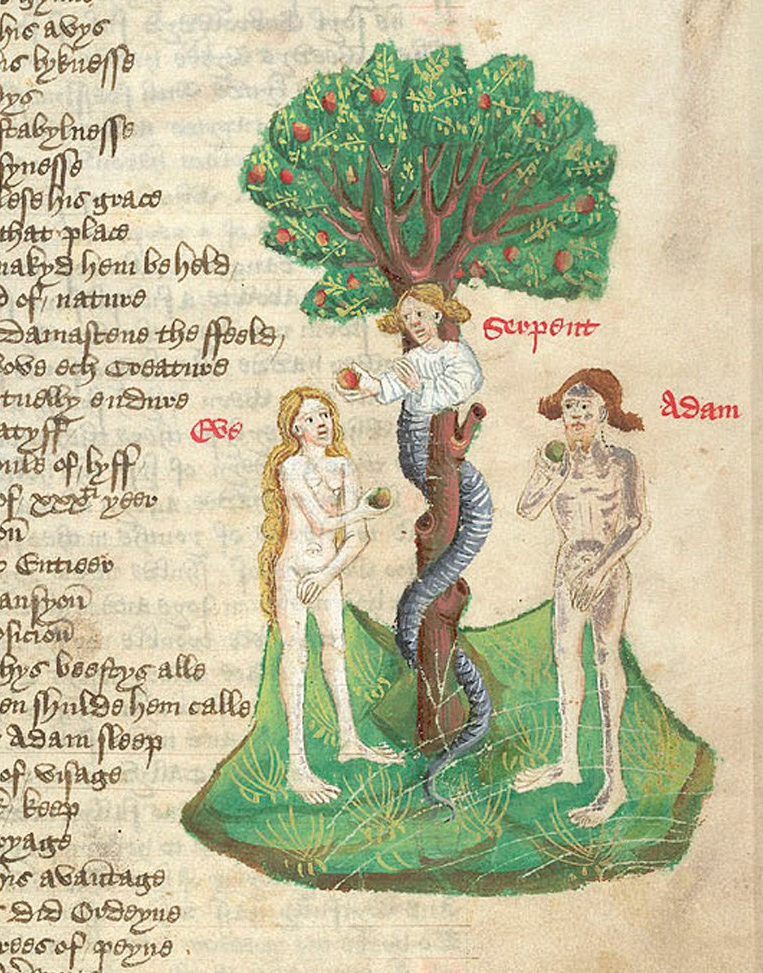 his avys
is lyknesse
tys
stabylnesse
synesse
lese his grace
that place
nakyd hem beheld
d of nature
Damastene the ffeeld
ove ech Creature
tuelly endure
atyff
of lyff
of xxx yeer
on
Entieer
ansyon
osicion
hys beestys alle
en shulde hem calle
Adam sleep
of visage
keep
oyage
his avantage
did Ordeyne
trees of peyne
Serpent
Eve
Adam